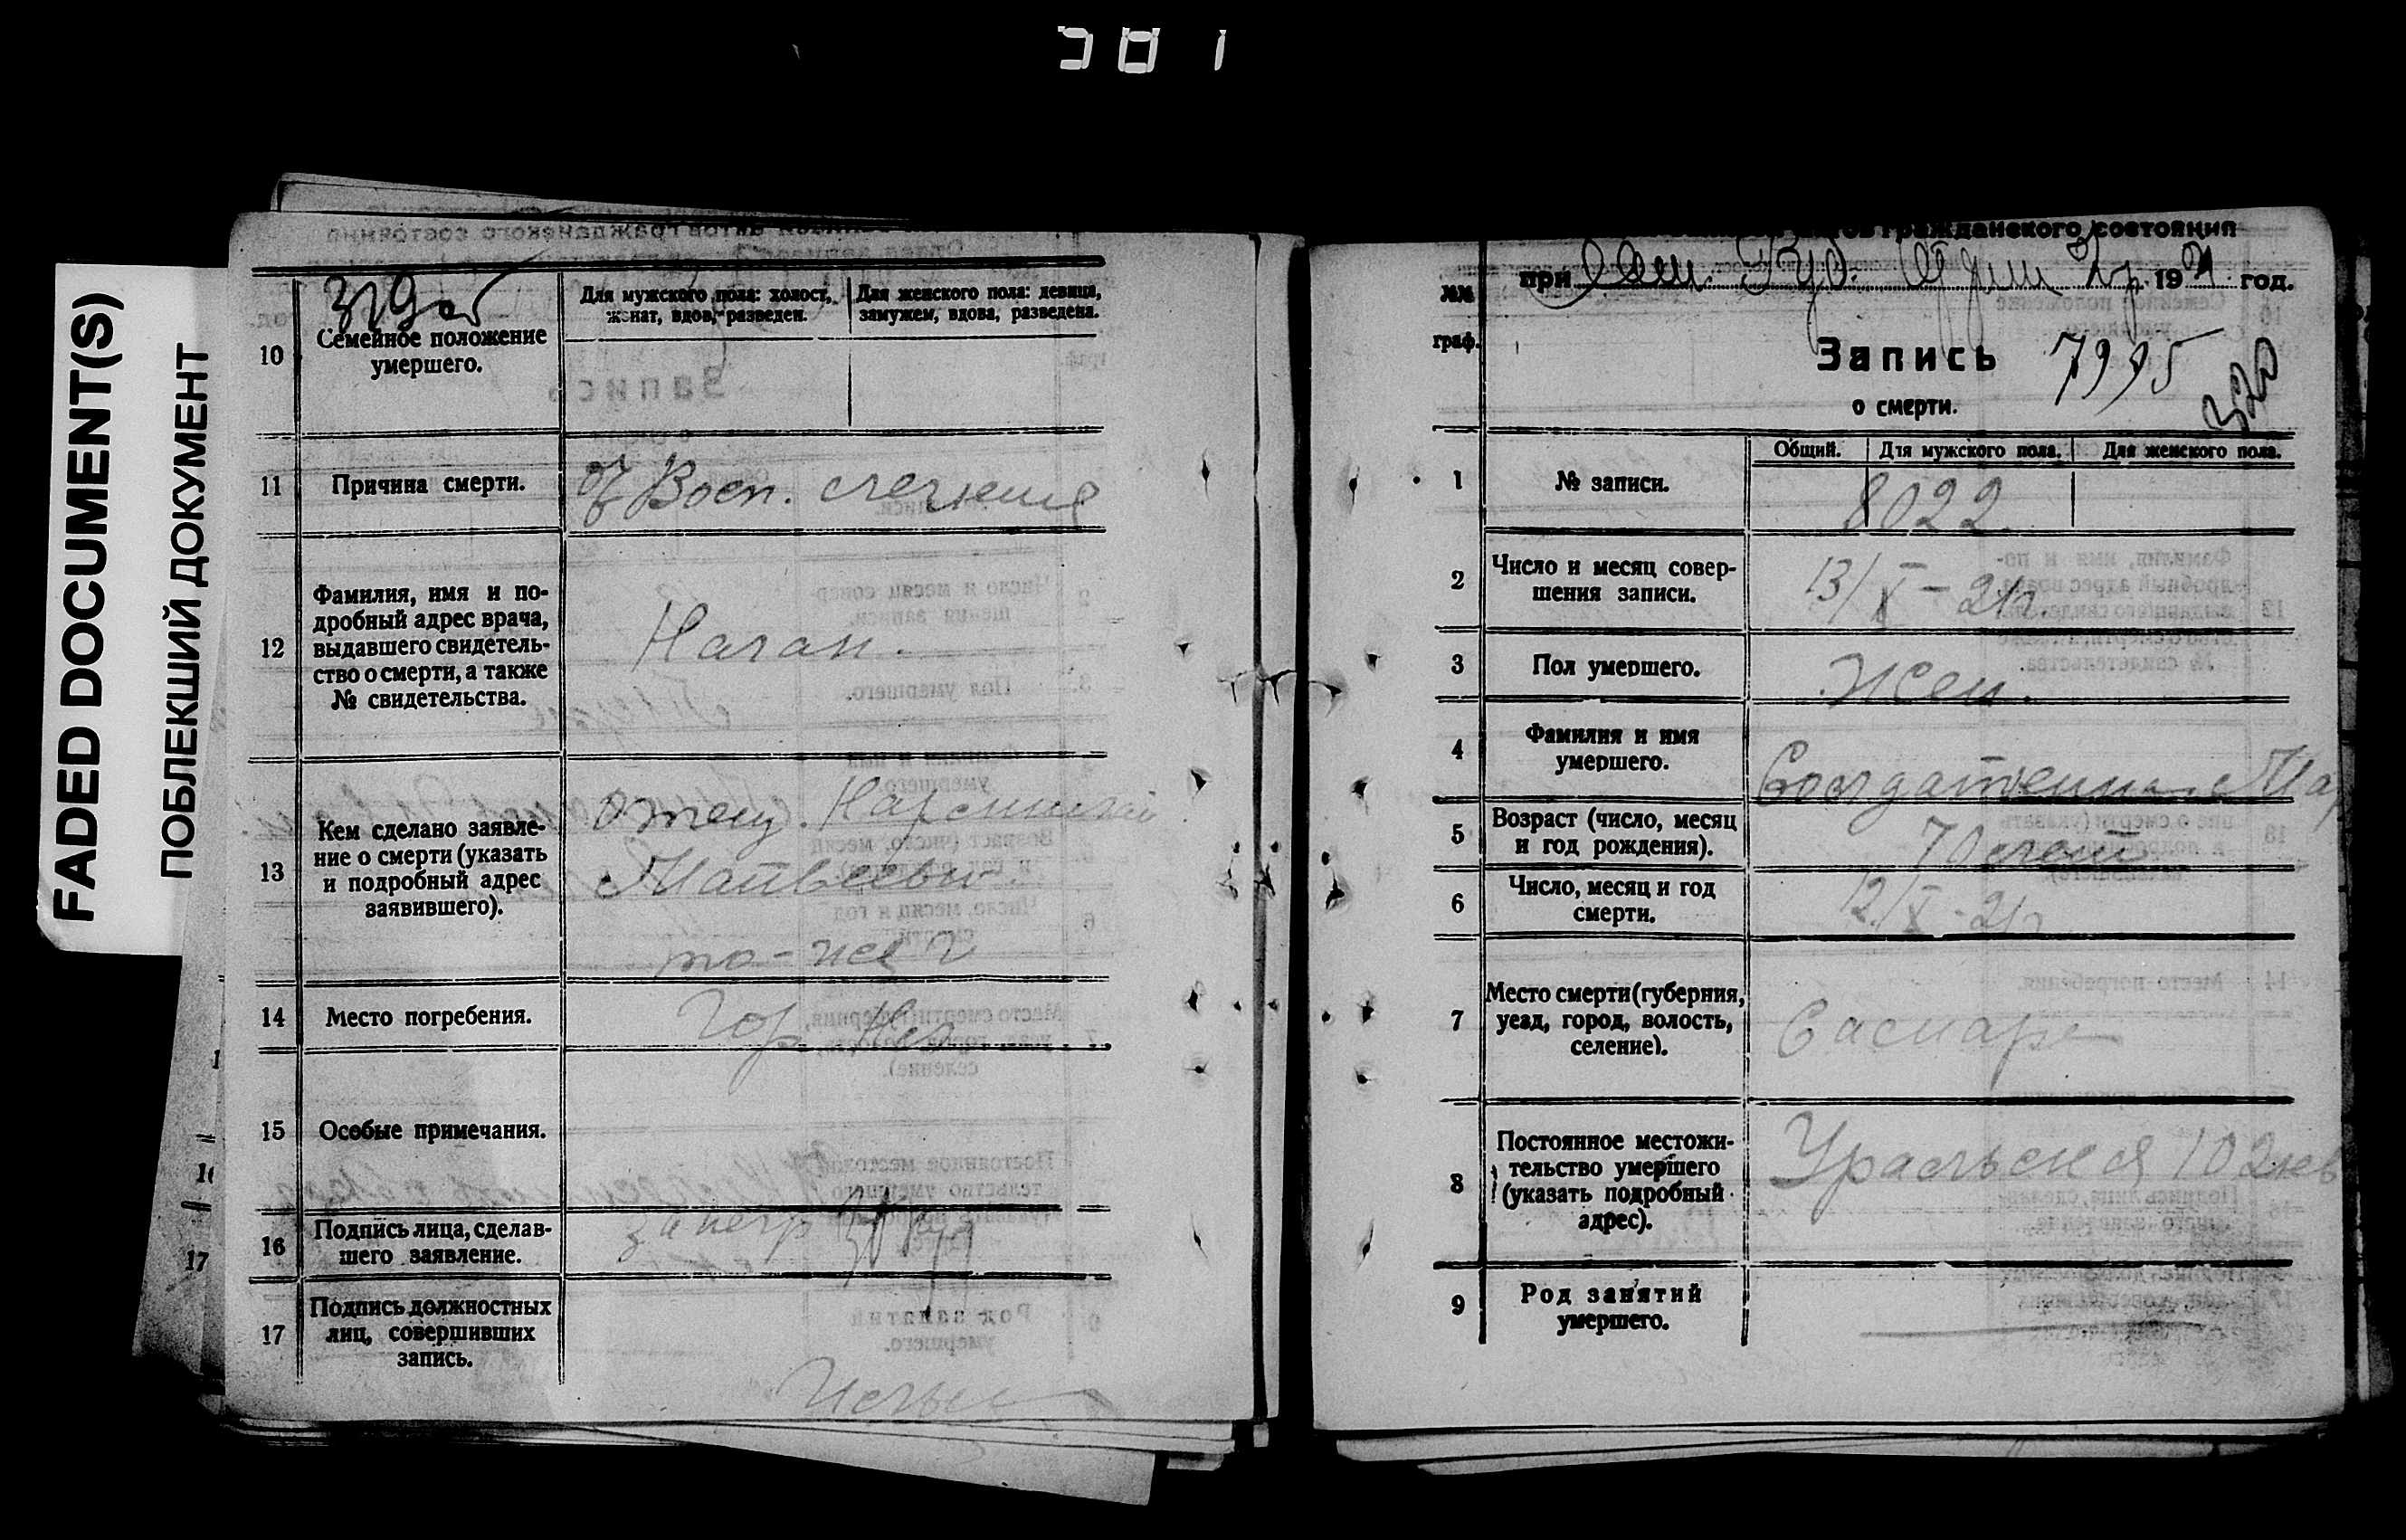 381
FADED DOCUMENT(S)
ПОБЛЕКШИЙ ДОКУМЕНТ
10
Семейное положение
умершего.
Для мужского пола: холост,
женат, вдов, разведен.
Для женского пола: девица,
замужем, вдова, разведена.
11
Причина смерти.
от Восп.
12
Фамилия, имя и по-
дробный адрес врача,
выдавшего свидетель-
ство о смерти, а также
№ свидетельства.
Каган.
13
Кем сделано заявле-
ние о смерти (указать
и подробный адрес
заявившего).
отец.
Матвеевы
14
Место погребения.
Гор
15
Особые примечания.
16
Подпись лица, сделав-
шего заявление.
за негр
17
Подпись должностных
лиц, совершивших
запись.
гражданского состояния
при 1921 год.
№№
граф.
Запись 7995
о смерти.
320
Общий.
Для мужского пола.
Для женского пола.
1
№ записи.
8022
2
Число и месяц совер-
шения записи.
13/X-21г
3
Пол умершего.
Жен.
4
Фамилия и имя
умершего.
Мар
5
Возраст (число, месяц
и год рождения).
70 лет
6
Число, месяц и год
смерти.
12/X-21г
7
Место смерти (губерния,
уезд, город, волость,
селение).
Самара
8
Постоянное местожи-
тельство умершего
(указать подробный
адрес).
Уральская 102 кв
9
Род занятий
умершего.